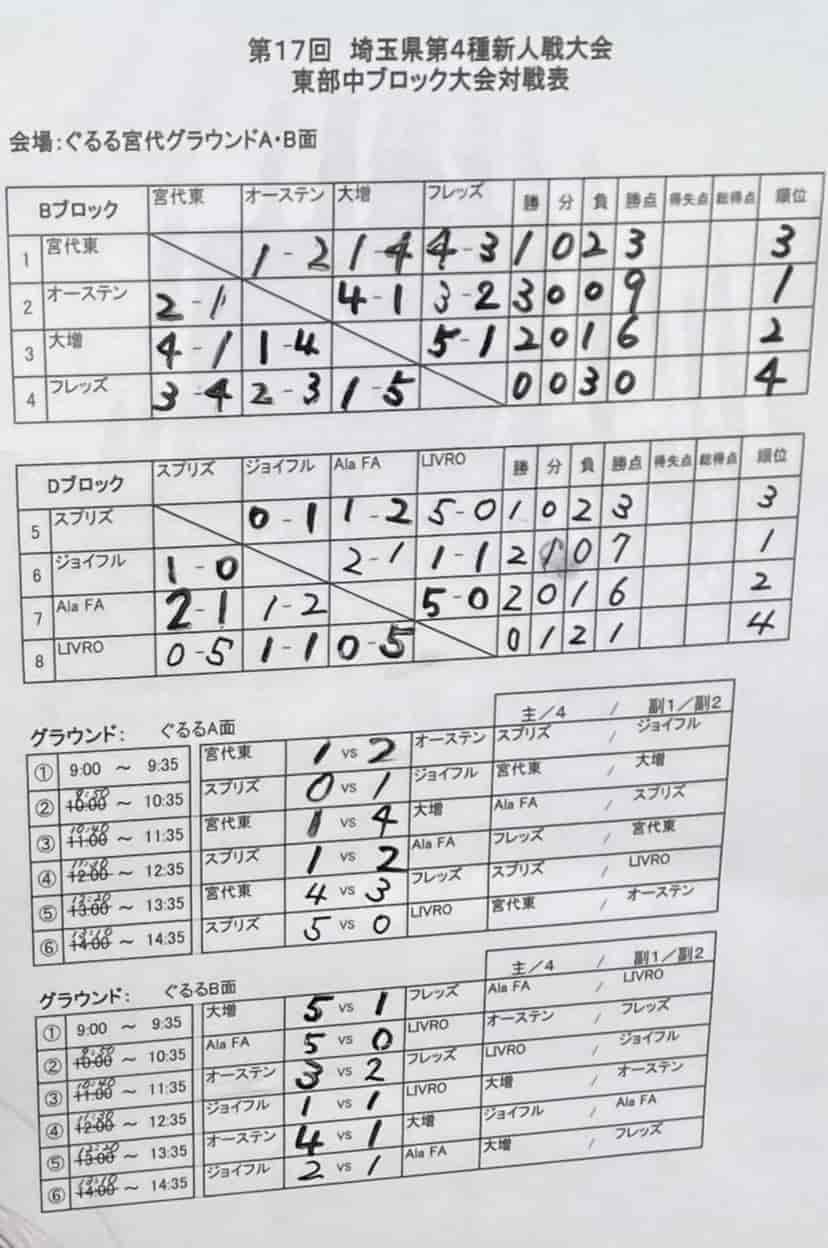 第17回 埼玉県第4種新人戦大会
東部中ブロック大会対戦表
会場:ぐるる宮代グラウンドA・B面
Bブロック 宮代東 オーステン 大増 フレッズ 勝 分 負 勝点 得失点 総得点 順位
1 宮代東 1-2 1-4 4-3 1 0 2 3 3
2 オーステン 2-1 4-1 3-2 3 0 0 9 1
3 大増 4-1 1-4 5-1 2 0 1 6 2
4 フレッズ 3-4 2-3 1-5 0 0 3 0 4
Dブロック スプリズ ジョイフル Ala FA LIVRO 勝 分 負 勝点 得失点 総得点 順位
5 スプリズ 0-1 1-2 5-0 1 0 2 3 3
6 ジョイフル 1-0 2-1 1-1 2 1 0 7 1
7 Ala FA 2-1 1-2 5-0 2 0 1 6 2
8 LIVRO 0-5 1-1 0-5 0 1 2 1 4
グラウンド: ぐるるA面 主/4 / 副1/副2
① 9:00 ~ 9:35 宮代東 1 vs 2 オーステン スプリズ / ジョイフル
② 10:00 9:50 ~ 10:35 スプリズ 0 vs 1 ジョイフル 宮代東 / 大増
③ 11:00 10:40 ~ 11:35 宮代東 1 vs 4 大増 Ala FA / スプリズ
④ 12:00 11:30 ~ 12:35 スプリズ 1 vs 2 Ala FA フレッズ / 宮代東
⑤ 13:00 12:20 ~ 13:35 宮代東 4 vs 3 フレッズ スプリズ / LIVRO
⑥ 14:00 13:10 ~ 14:35 スプリズ 5 vs 0 LIVRO 宮代東 / オーステン
グラウンド: ぐるるB面 主/4 / 副1/副2
① 9:00 ~ 9:35 大増 5 vs 1 フレッズ Ala FA / LIVRO
② 10:00 9:50 ~ 10:35 Ala FA 5 vs 0 LIVRO オーステン / フレッズ
③ 11:00 10:40 ~ 11:35 オーステン 3 vs 2 フレッズ LIVRO / ジョイフル
④ 12:00 11:30 ~ 12:35 ジョイフル 1 vs 1 LIVRO 大増 / オーステン
⑤ 13:00 12:20 ~ 13:35 オーステン 4 vs 1 大増 ジョイフル / Ala FA
⑥ 14:00 13:10 ~ 14:35 ジョイフル 2 vs 1 Ala FA 大増 / フレッズ